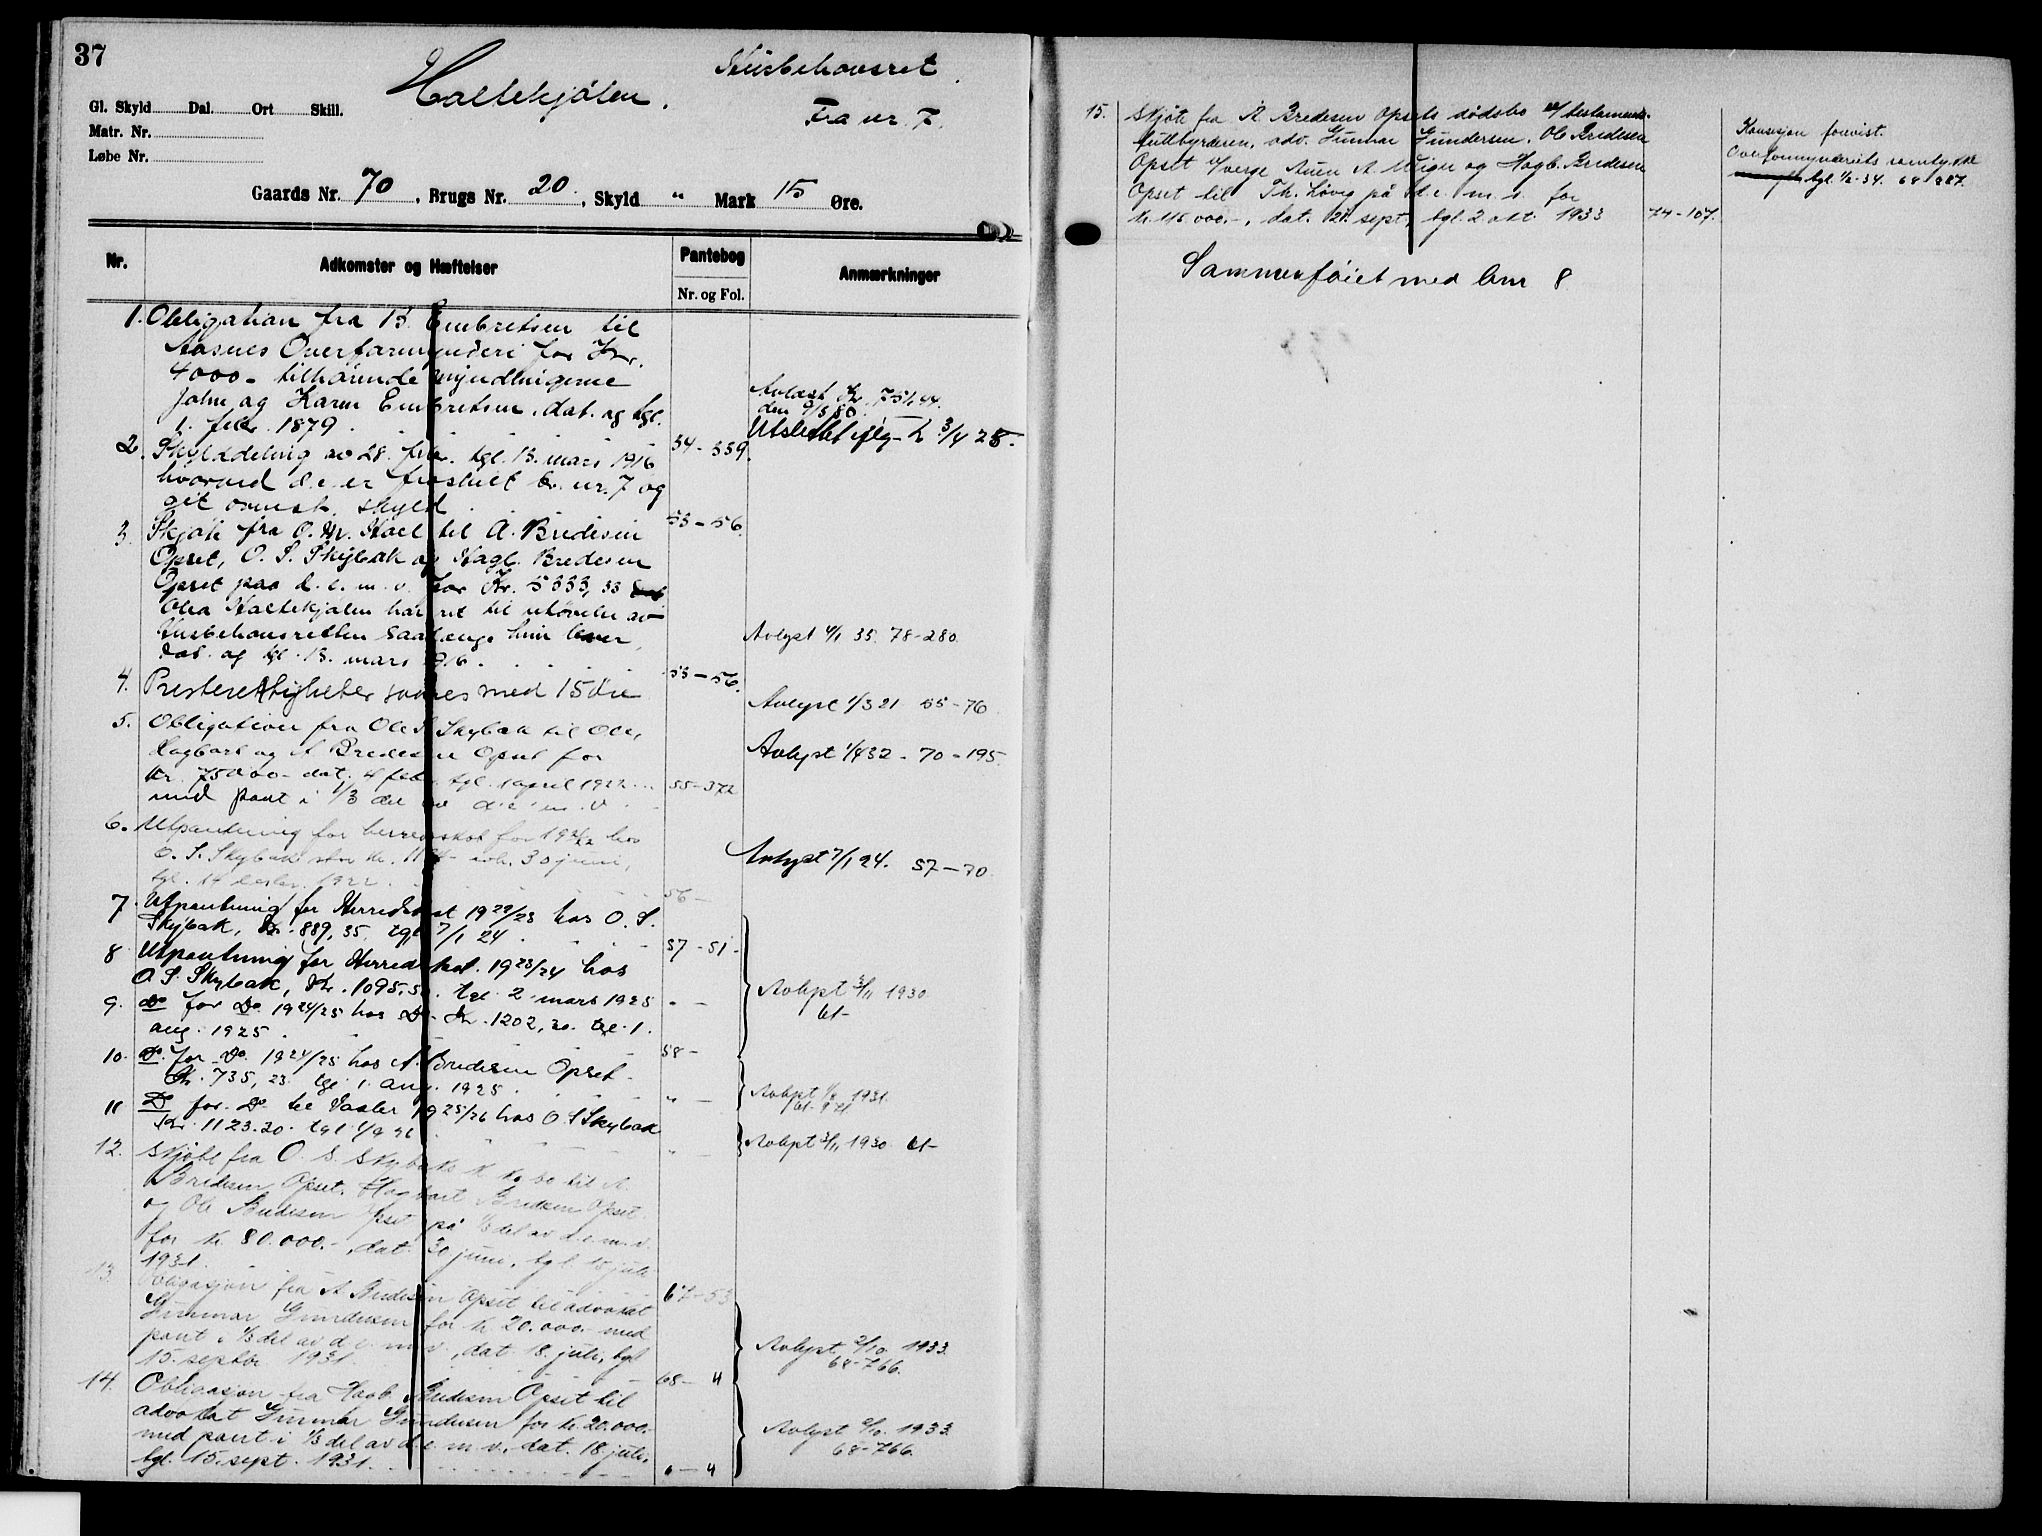 37
Haltekjølen.
Husbehovsret
Fra nr. 7.
Gl. Skyld Dal. Ort Skill.
Matr. Nr.
Løbe Nr.
Gaards Nr. 70, Brugs Nr. 20, Skyld " Mark 15 Øre.
Nr.
Adkomster og Hæftelser
Pantebog
Nr. og Fol.
Anmærkninger
1. Obligation fra B. Embretsen til
Aasnes Overformynderi for Kr.
4000- tilhørende myndlingerne
John og Karen Embretsen, dat. og tgl.
1. febr. 1879.
34-339.
Avløst Kr.
Utslettet iflg. 3/4 28.
2. Skylddeling av 28. febr. tgl. 13. mars 1916
hvorved d.e. er fraskilt br. nr. 7 og
git ovennt. skyld
53-56
3. Skjøte fra O. Hael til A. Bredesen
Opset, O. S. Skybak og Hagb. Bredesen
Opset paa d. e. m. v. for Kr. 5333,33
Olea Haltekjølen har ret til utøvelse av
Husbehovsretten saalænge hun lever,
dat. og tgl. 13. mars 1916.
53-56.
Avlyst 4/1 35. 78-280.
4. Presterettigheter sones med 15 øre
Avlyst 1/3 21 55-76
5. Obligation fra Ole S. Skybak til Ole,
Hagbart og A Bredesen Opset for
Kr. 75000- dat. 4 febr. tgl. 1 april 1922
med pant i 1/3 del av d. e. m. v.
55-372
Avlyst 1/4 32 - 70-195.
6. Utpantning for herredsskat for 1921/22 hos
O. S. Skybak stor kr. avh. 30 juni,
tgl. 14 1922.
56-
Avlyst 7/1 24. 57-70.
7. Utpantning for Herredsskat 1922/23 hos O. S.
Skybak, Kr. 889,35. tgl. 7/1 24.
57-51-
8 Utpantning for Herredskat. 1923/24 hos
O. S. Skybak, Kr. 1095.50. tgl. 2. mars 1925
" -
Avlyst 3/11 1930
9. Do for Do 1924/25 hos Do Kr. 1202,20. tgl. 1.
aug. 1925
58-
10. Do. for Do. 1924/25 hos A. Bredesen Opset.
Kr. 735, 23 tgl. 1. aug. 1925.
" -
11 Do for Do til Vaaler 1925/26 hos O. S Skybak
Kr. 1123.20. tgl. 1/9 26
" -
Avlyst 3/11 1930
12. Skjøte fra O. S. Skybaks k. ko. bo til A.
Bredesen Opset, Hagbart Bredesen Opset
og Ole Bredesen Opset på 1/3 del av d. e. m. v.
for kr. 80.000.-, dat. 30 juni, tgl. 15 juli
1931.
67-53
13. Obligasjon fra A Bredesen Opset til advokat
Gunnar Gundersen for kr. 20.000.- med
pant i 1/3 del av d. e. m. v., dat. 18. juli, tgl.
15. septbr. 1931.
68-4
Avlyst 2/10 1933.
68-766.
14. Obligasjon fra Hagb. Bredesen Opset til
advokat Gunnar Gundersen for kr. 20.000.-
med pant i 1/3 del av d. e. m. v., dat. 18. juli,
tgl. 15. sept. 1931.
" - 4
Avlyst 2/10. 1933.
68-766.
15. Skjøte fra A Bredesen Opsets dødsbo v/ testaments-
fullbyrderen, adv. Gunnar Gundersen, Ole Bredesen
Opset v/ verge A. og Hagb. Bredesen
Opset til Th. Løvig på d. e. m. v. for
kr. 116.000.-, dat. 21. sept., tgl. 2. okt. 1933
74-107.
Konsesjon forevist.
Overformynderiets samtykke
tgl. 1/2-34. 68 287.
Sammenføiet med bnr 8